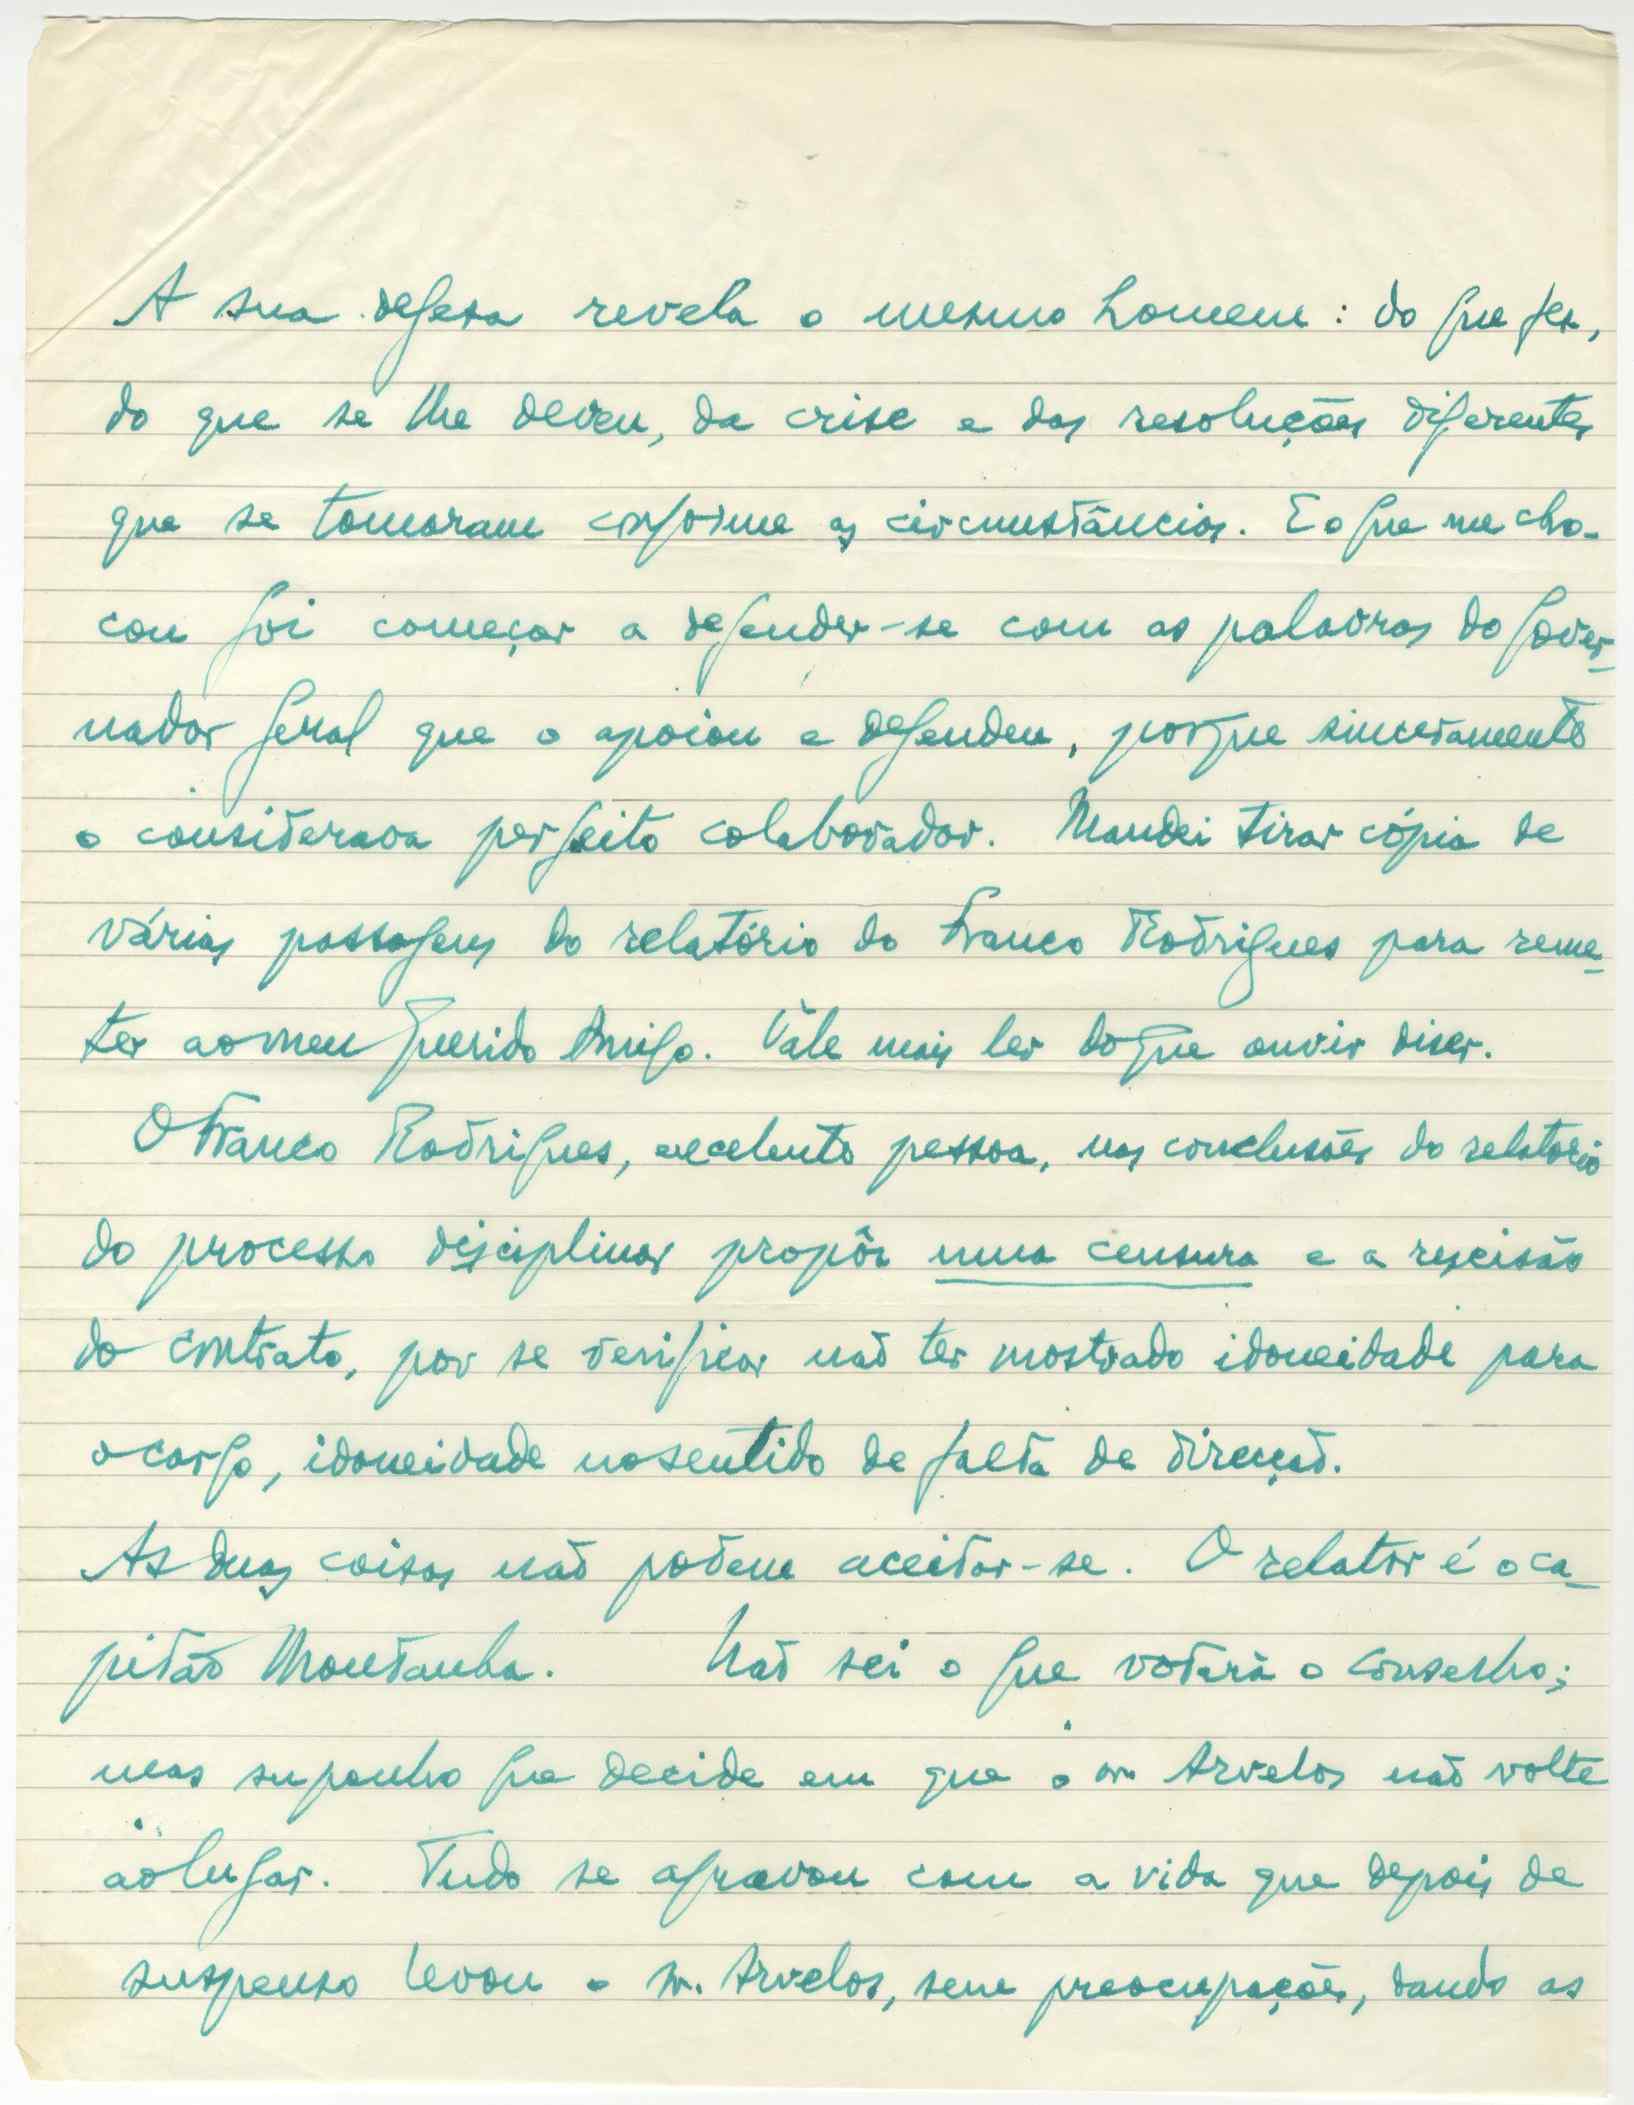 A sua defesa revela o mesmo homem: do que fez,
do que se lhe deveu, da crise e das resoluções diferentes
que se tomaram conforme as circunstâncias. E o que me cho-
cou foi começar a defender-se com as palavras do Gover-
nador Geral que o apoiou e defendeu, porque sinceramente
o considerava perfeito colaborador. Mandei tirar cópia de
várias passagens do relatório do Franco Rodrigues para reme-
ter ao meu Querido Amigo. Vale mais ler do que ouvir dizer.
O Franco Rodrigues, excelente pessoa, nas conclusões do relatório
do processo disciplinar propôs uma censura e a rescisão
do contrato, por se verificar não ter mostrado idoneidade para
o cargo, idoneidade no sentido de falta de direcção.
As duas coisas não podem aceitar-se. O relator é o ca-
pitão Montanha. Não sei o que votará o Conselho;
mas suponho que decide em que o sr. Arvelos não volte
ao lugar. Tudo se agravou com a vida que depois de
suspenso levou o sr. Arvelos, sem preocupações, dando as